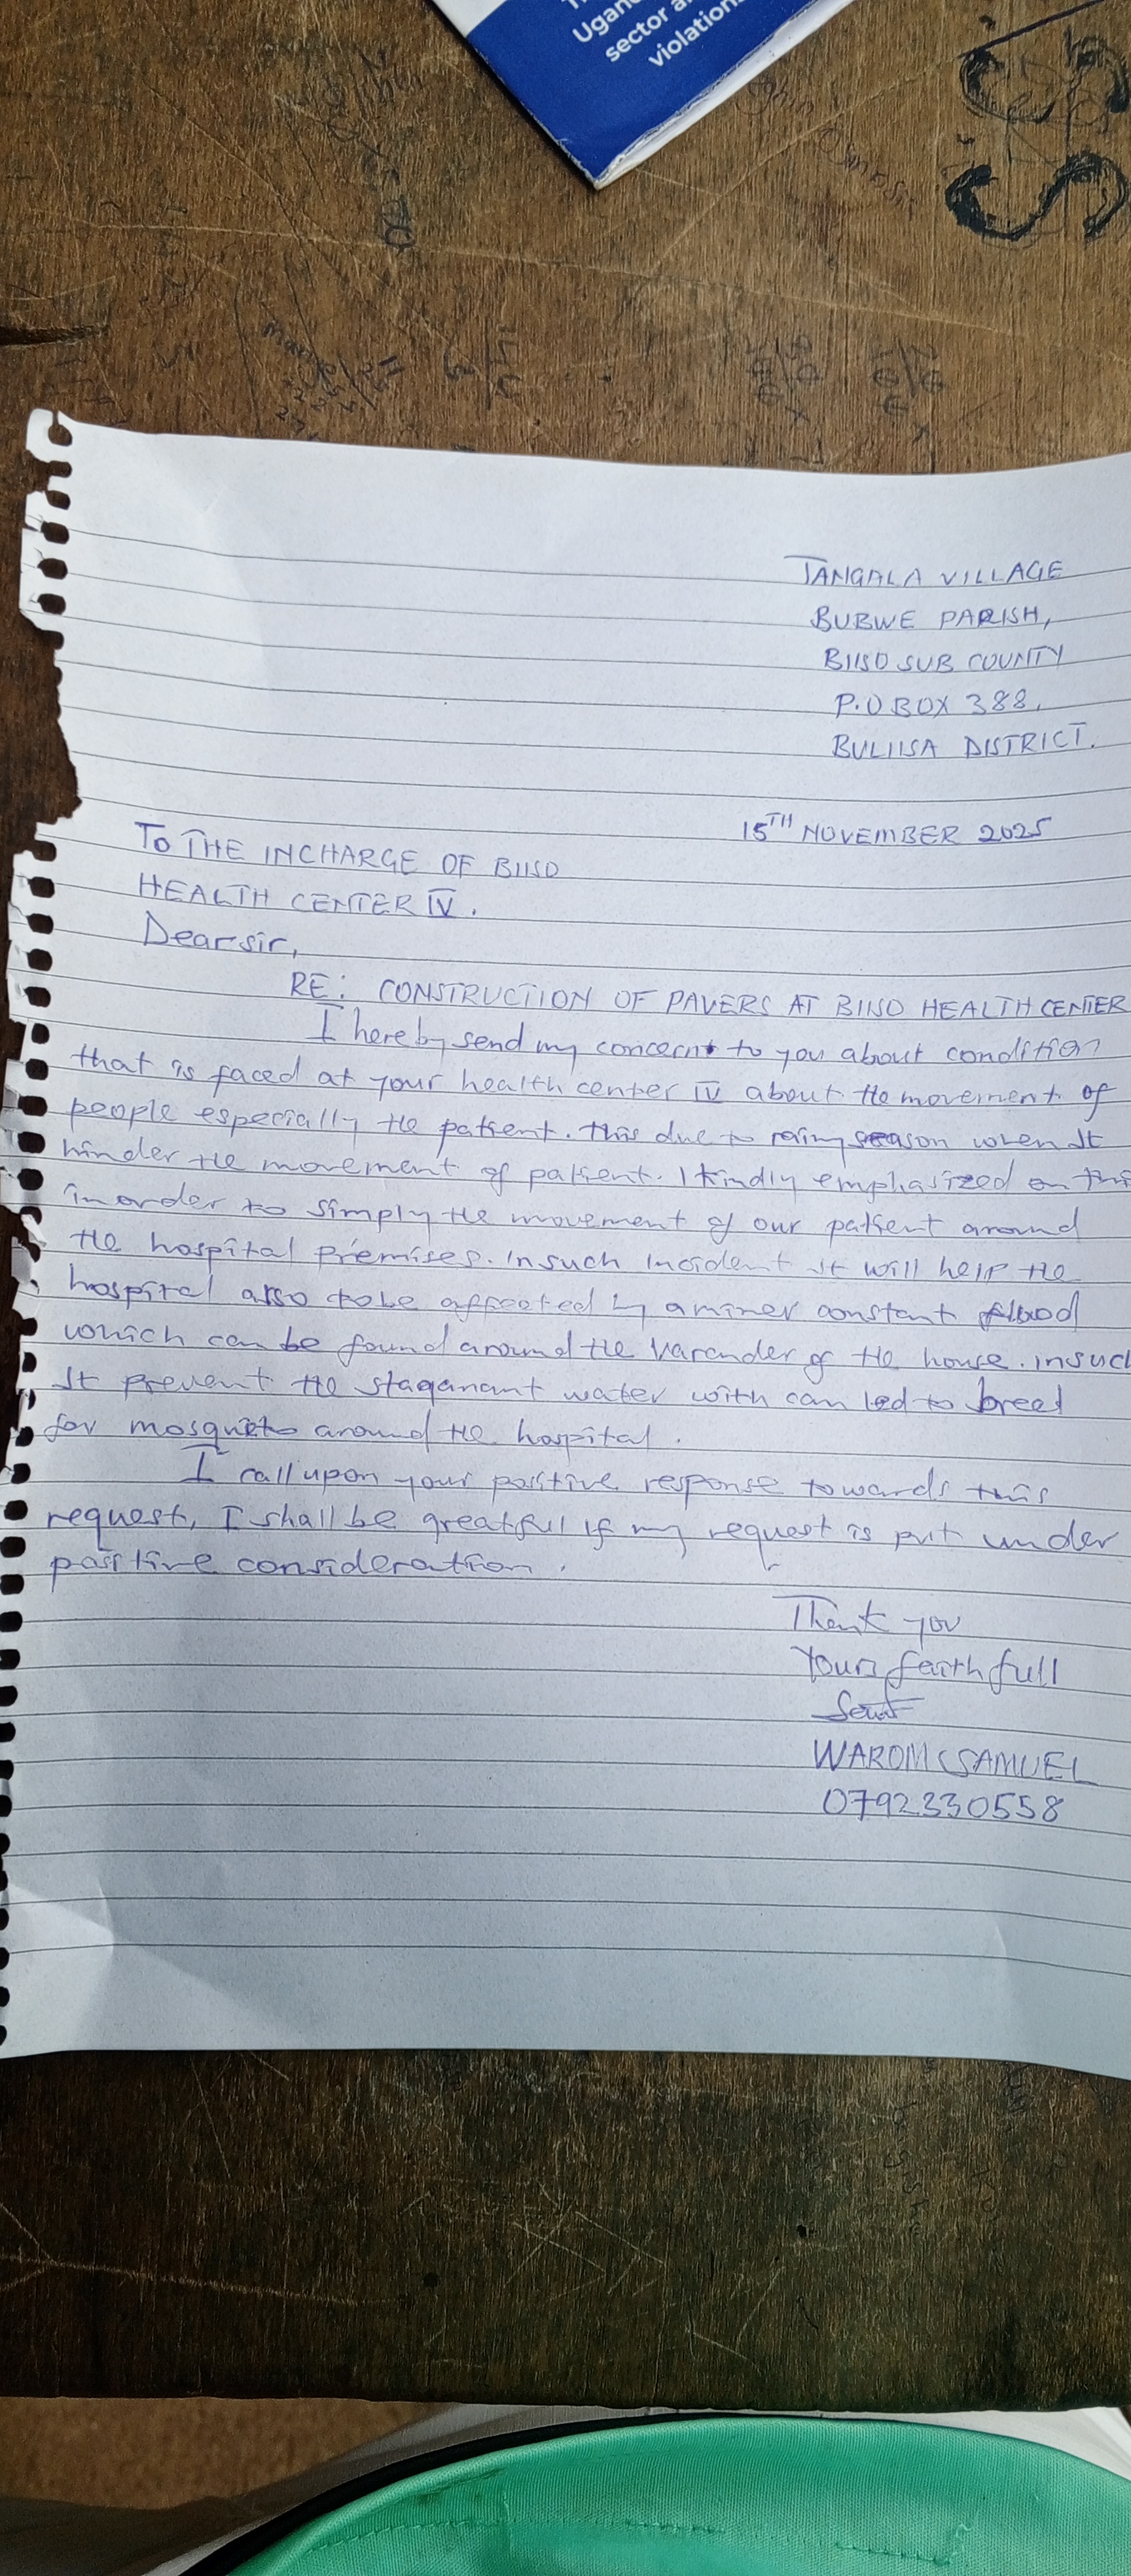 Ugan
sector a
violation
TANGALA VILLAGE
BUBWE PARISH,
BIISO SUB COUNTY
P.O BOX 388,
BULIISA DISTRICT.
15TH NOVEMBER 2025
TO THE INCHARGE OF BIISO
HEALTH CENTER IV.
Dear sir,
RE: CONSTRUCTION OF PAVERS AT BIISO HEALTH CENTER
I hereby send my concern to you about condition
that is faced at your health center IV about the movement of
people especially the patient. this due to rainy season when It
hinder the movement of patient. I kindly emphasized on this
in order to simply the movement of our patient around
the hospital premises. In such Incident it will help the
hospital also to be affected by a miner constant flood
which can be found around the varander of the house. in suc
It prevent the staganant water with can led to breed
for mosquito around the hospital.
I call upon your positive response towards this
request, I shall be greatful if my request is put under
positive consideration.
Thank you
Yours faithfull
WAROM SAMUEL
0792330558